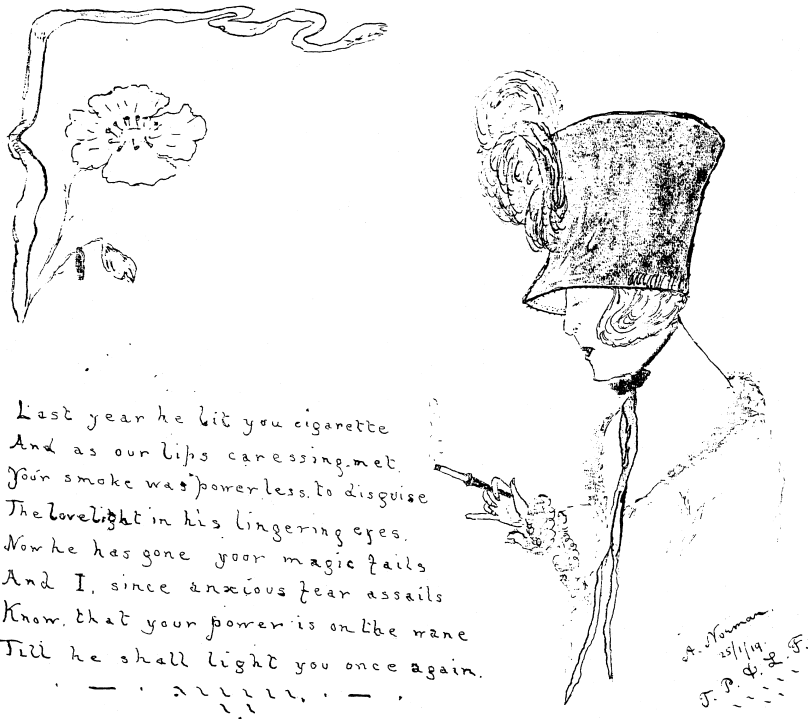 Last year he lit you cigarette
And as our lips caressing met.
Your smoke was powerless to disguise
The lovelight in his lingering eyes.
Now he has gone your magic fails
And I, since anxious fear assails
Know, that your power is on the wane
Till he shall light you once again.
A. Norman.
25/1/19.
J. P. & L. F.